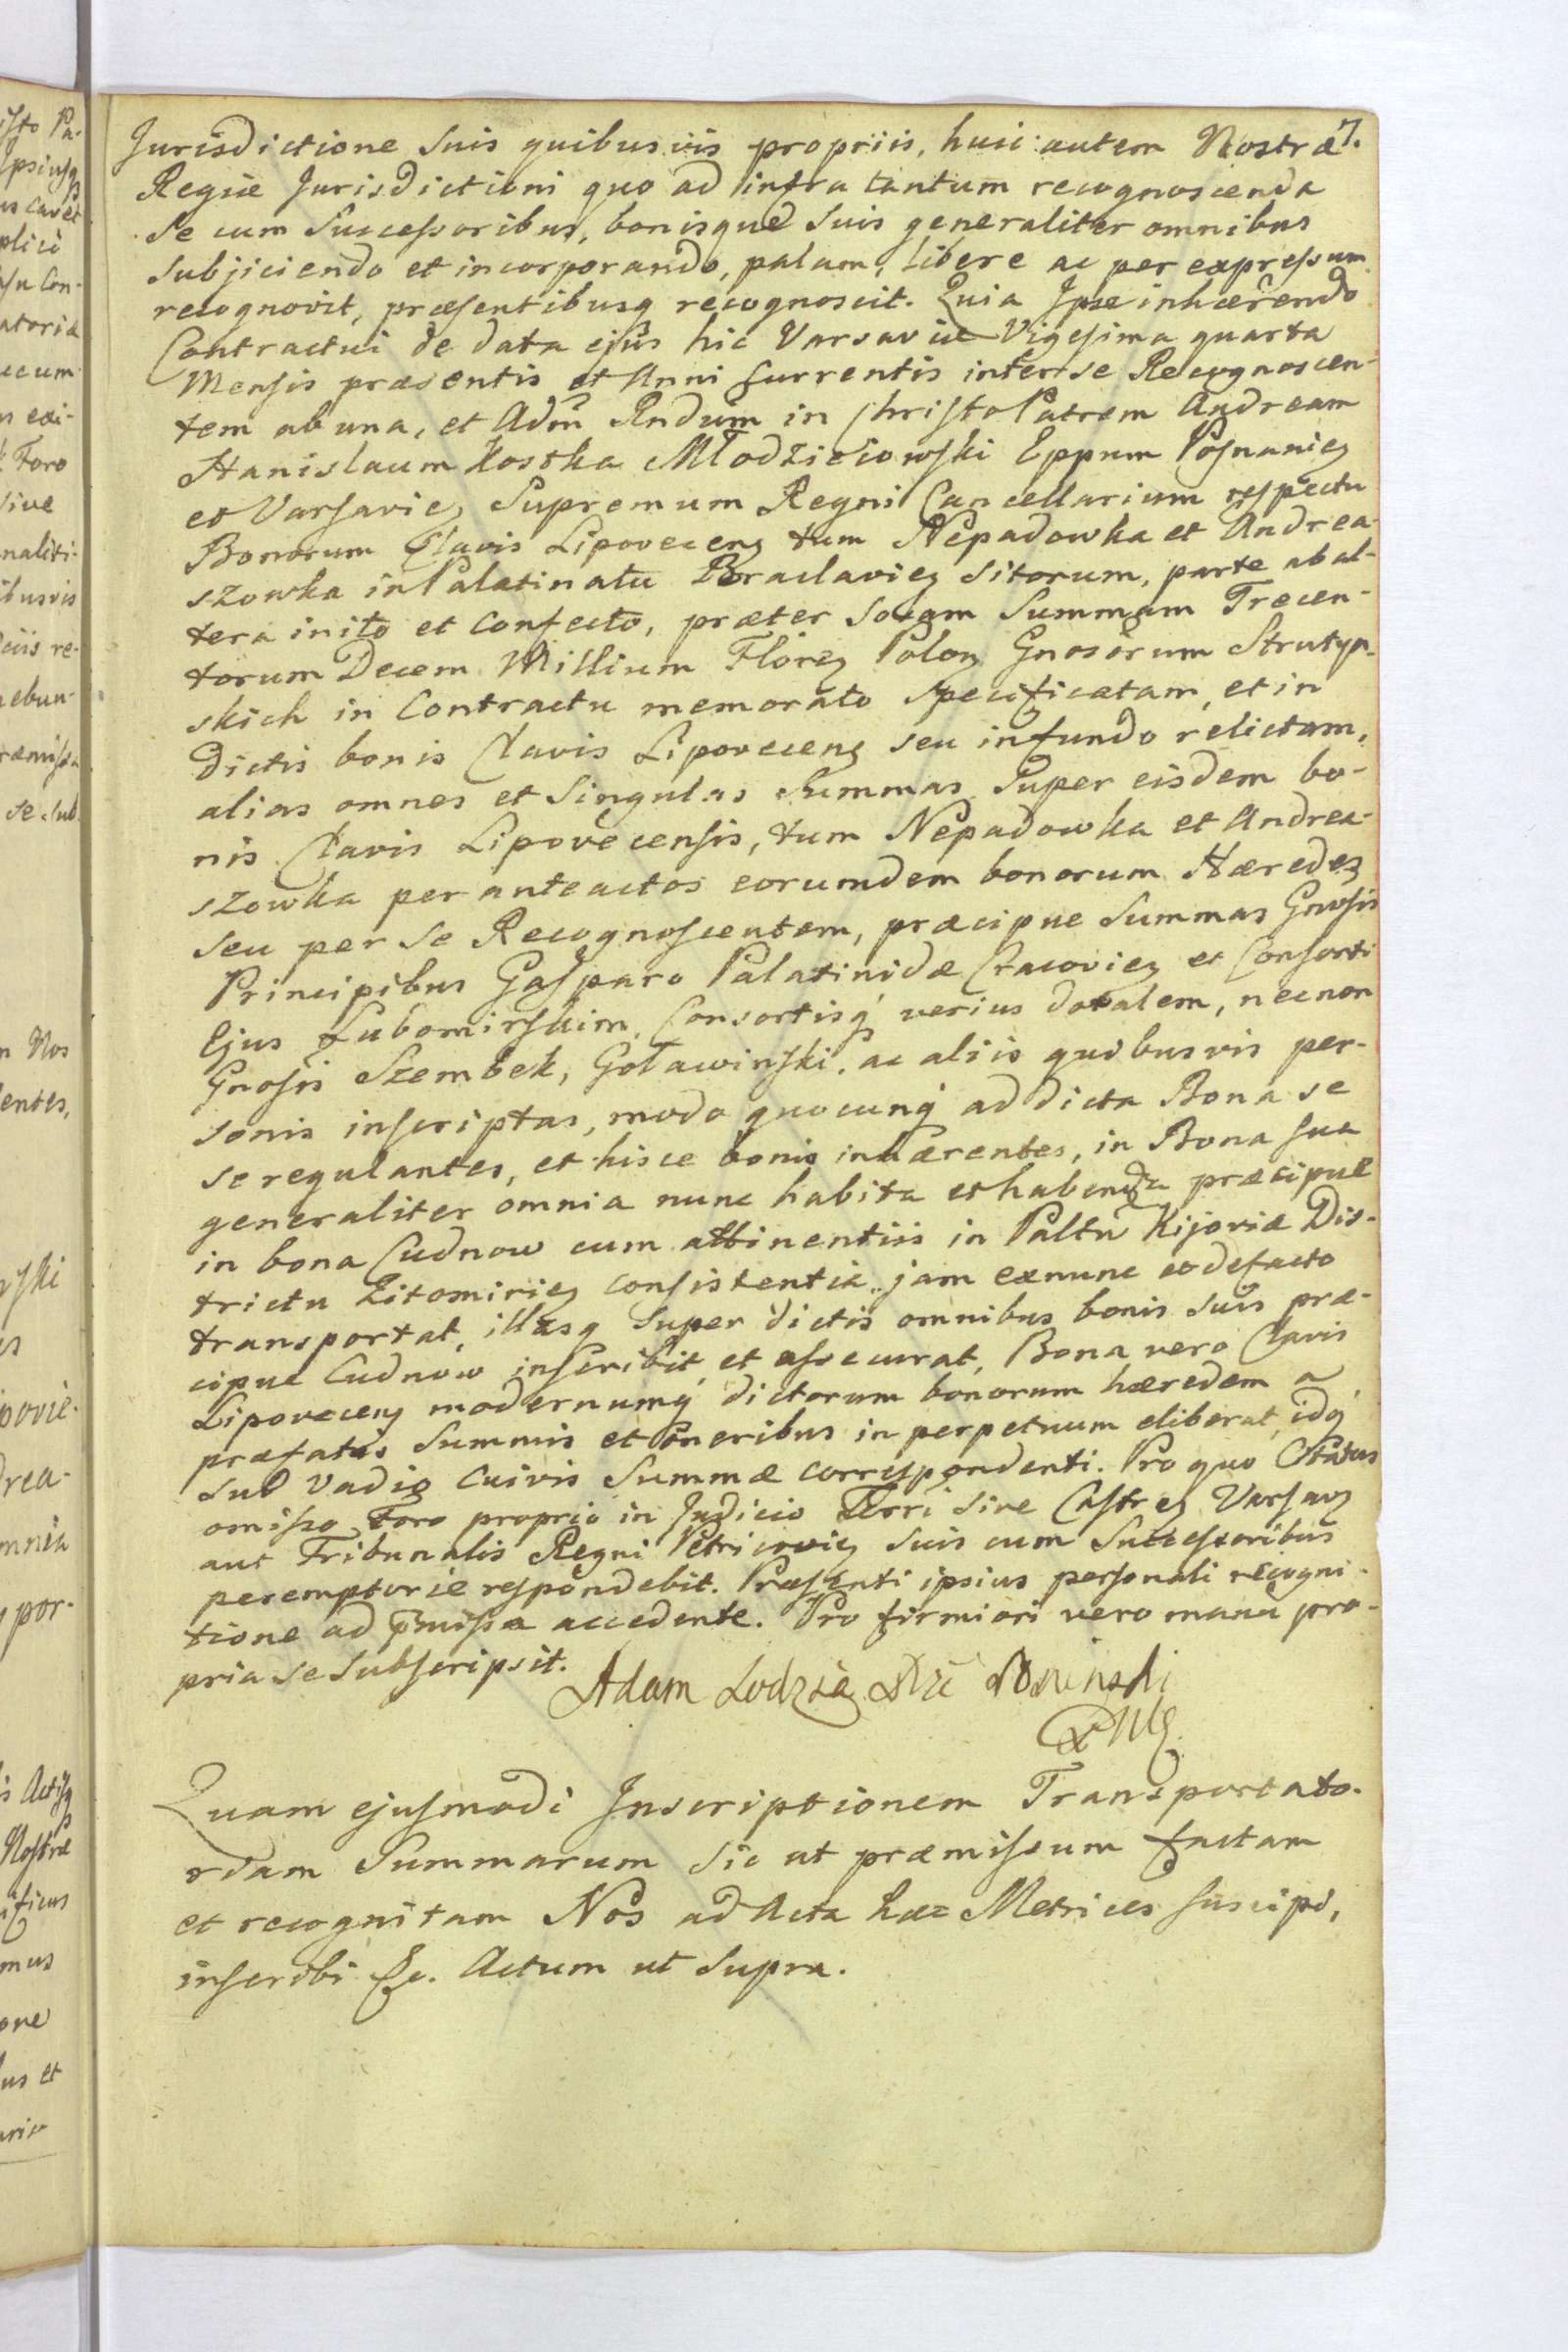 7.
Jurisdictione suis quibusvis propriis, huic autem Nostræ
Regiæ Jurisdictioni quo ad infra tantum recognoscenda
se cum Successoribus, bonisque suis generaliter omnibus
subjiciendo et incorporando, palam, libere ac per expressum
recognovit, præsentibusq recognoscit. Quia Ipse inhærendo
Contractui de data ejus hic Varsaviæ Vigesima quarta
Mensis præsentis et Anni currentis inter se Recognoscen-
tem ab una, et Adm Rndum in Christo Patrem Andream
Stanislaum Kostka Młodzieiowski Eppum Posnanien
et Varsavien, Supremum Regni Cancellarium respectu
Bonorum Clavis Lipovecens tum Nepadowka et Andrea-
szowka in Palatinatu Braclavien sitorum, parte ab al-
tera inito et confecto, præter solam Summam Trecen-
torum Decem Millium Floren Polon Gnosorum Strutyn-
skich in Contractu memorato specificatam, et in
dictis bonis Clavis Lipovecens seu in fundo relictam,
alias omnes et singulas Summas super eisdem bo-
nis Clavis Lipovecensis, tum Nepadowka et Andrea-
szowka per anteactos eorumdem bonorum Hæredes
seu per se Recognoscentem, præcipue Summas Gnosis
Principibus Gasparo Palatinidæ Cracovien et Consorti
Ejus Lubomirskim, Consortisq verius dotalem, necnon
Gnosis Szembek, Goławinski, ac aliis quibusvis per-
sonis inscriptas, modo quocunq ad dicta Bona se
se regulantes, et hisce bonis inhærentes, in Bona sua
generaliter omnia nunc habita et habenda præcipue
in bona Cudnow cum attinentiis in Paltu Kijoviæ Dis-
trictu Zitomirien consistentia, jam ex nunc et de facto
transportat, illasq super dictis omnibus bonis suis præ-
cipue Cudnow inscribit et assecurat, Bona vero Clavis
Lipovecens modernumq dictorum bonorum hæredem a
præfatis Summis et oneribus in perpetuum eliberat, idq
sub vadio cuivis Summæ correspondenti. Pro quo Citatus
omisso Foro proprio in Judicio Terri sive Castren Varsav
aut Tribunalis Regni Petricovien suis cum Successoribus
peremptorie respondebit. Præsenti ipsius personali recogni-
tione ad pmissa accedente. Pro firmiori vero manu pro-
pria se subscripsit.
Adam Lodzia Poninski
Quam ejusmodi Inscriptionem Transportato-
riam Summarum sic ut præmissum factam
et recognitam Nos ad Acta hæc Metrices suscipi,
inscribi &c. Actum ut supra.